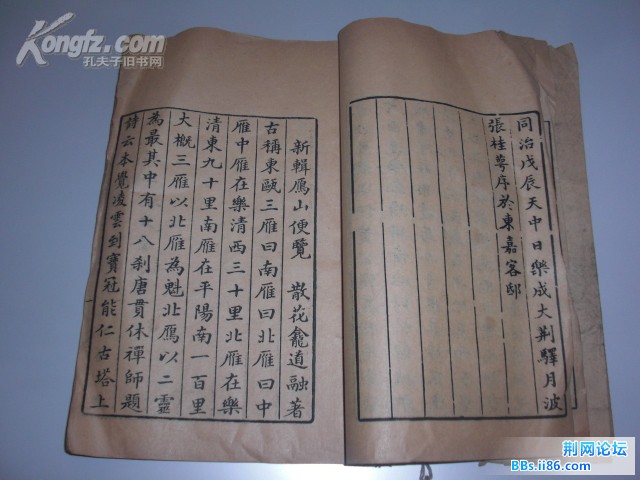 同治戊辰天中日樂成大荆驛月波
張桂萼序於東嘉客邸
新輯鴈山便覽　散花龕道融著
古稱東甌三雁曰南雁曰北雁曰中
雁中雁在樂清西三十里北雁在樂
清東九十里南雁在平陽南一百里
大概三雁以北雁為魁北鴈以二靈
為最其中有十八刹唐貫休禪師題
詩云本覺凌雲到寶冠能仁古塔上
Kongfz.com
孔夫子旧书网
荆网论坛
BBs.ii86.com